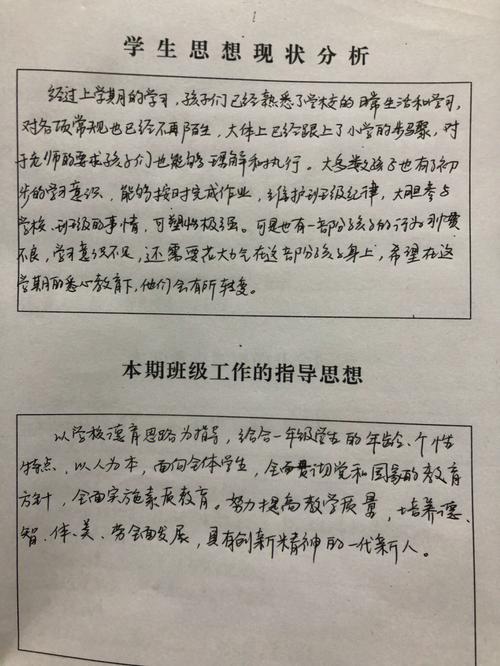 学生思想现状分析
经过上学期的学习，孩子们已经熟悉了学校的日常生活和学习，
对各项常规也已经不再陌生，大体上已经跟上了小学的步骤，对
于老师的要求孩子们也能够理解和执行。大多数孩子也有了初
步的学习意识，能够按时完成作业，维护班级纪律，大胆参与
学校、班级的事情，可塑性极强。可是也有一部分孩子的行为习惯
不良，学习意识不足，还需要花大力气在这部分孩子身上，希望在这
学期的悉心教育下，他们会有所转变。
本期班级工作的指导思想
以学校德育思路为指导，结合一年级学生的年龄、个性
特点，以人为本，面向全体学生，全面贯彻党和国家的教育
方针，全面实施素质教育。努力提高教学质量，培养德、
智、体、美、劳全面发展，具有创新精神的一代新人。